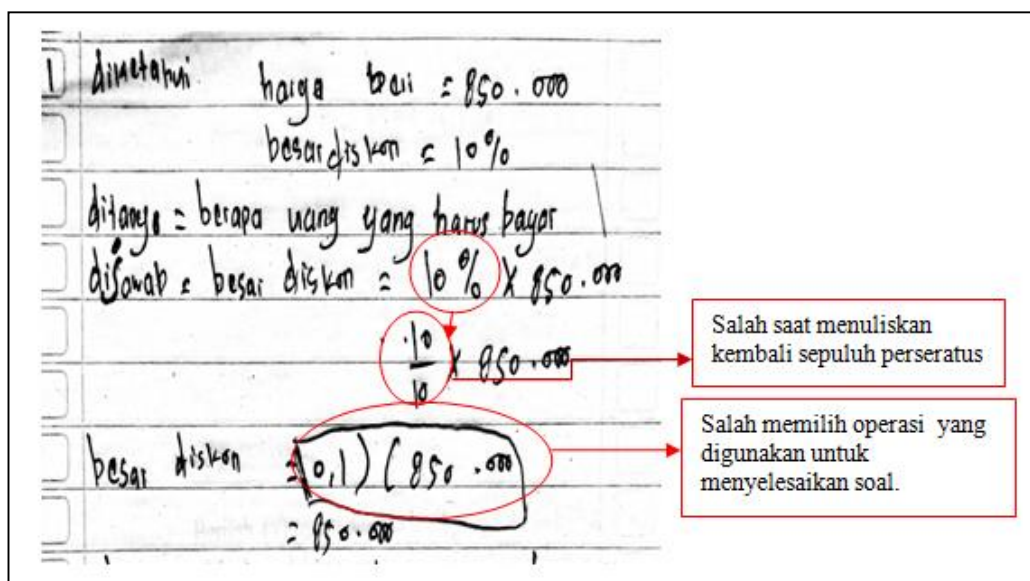 1 diketahui harga beli = 850.000
besar diskon = 10%
ditanya = berapa uang yang harus bayar
dijowab = besar diskon = 10% X 850.000
10/10 X 850.000
besar diskon = (0,1) (850.000
= 850.000
Salah saat menuliskan
kembali sepuluh perseratus
Salah memilih operasi yang
digunakan untuk
menyelesaikan soal.